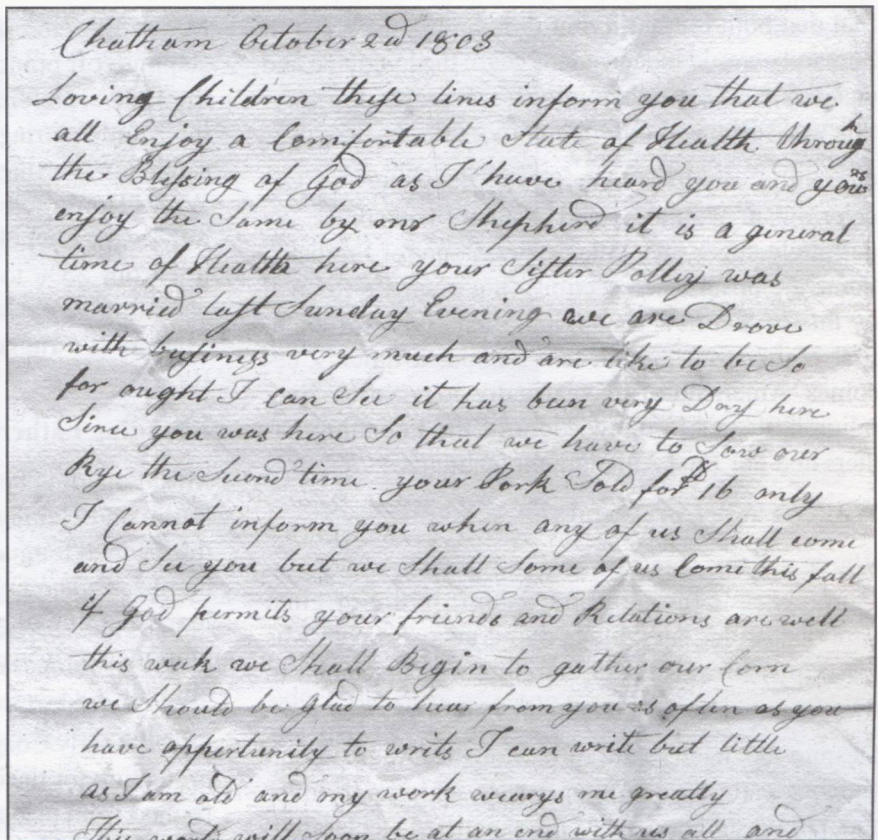 Chatham October 2d 1803
Loving Children these lines inform you that we
all Enjoy a Comfortable State of Health through
the Blessing of God as I have heard you and yours
enjoy the Same by mr Shepherd it is a general
time of Health here your Sister Polley was
married last Sunday Evening we are Drove
with business very much and are like to be So
for ought I can See it has been very Dry here
Since you was here So that we have to Sow our
Rye the Second time. your Pork Sold for 16 only
I Cannot inform you when any of us Shall come
and See you but we Shall Some of us Come this fall
if God permits your friends and Relations are well
this week we Shall Begin to gather our Corn
we Should be Glad to hear from you as often as you
have oppertunity to write I can write but little
as I am old and my work wearys me greatly
This world will Soon be at an end with us all and